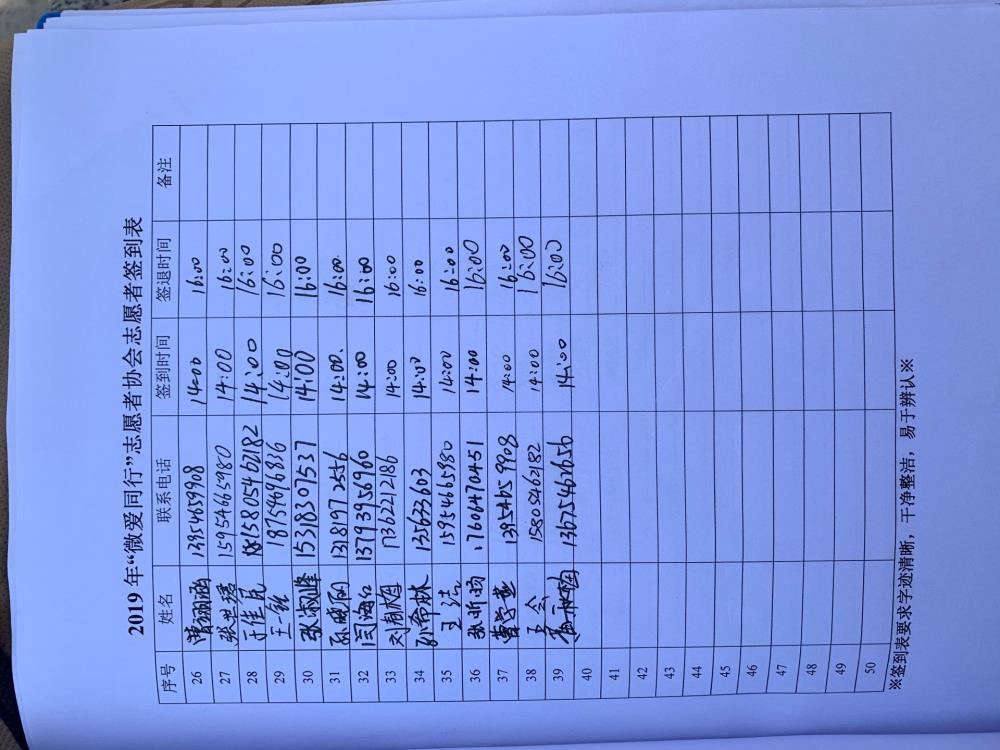 2019年“微爱同行”志愿者协会志愿者签到表
序号 姓名 联系电话 签到时间 签退时间 备注
26 曹丽涵 13954659908 14:00 16:00
27 张世瑶 15954665980 14:00 16:00
28 15805462182 14:00 16:00
29 18754696836 14:00 16:00
30 张淑峰 15318307537 14:00 16:00
31 孙晓阳 13181972556 14:00. 16:00
32 闫海红 13793956960 14:00 16:00
33 17362212186 14:00 16:00
34 孙希林 135623603 14:00 16:00
35 王洁 15954665980 14:00 16:00
36 张昕昀 17606470451 14:00 16:00
37 13954659908 14:00 16:00
38 15805462182 14:00 16:00
39 13675467656 14:00 16:00
40
41
42
43
44
45
46
47
48
49
50
※签到表要求字迹清晰，干净整洁，易于辨认※